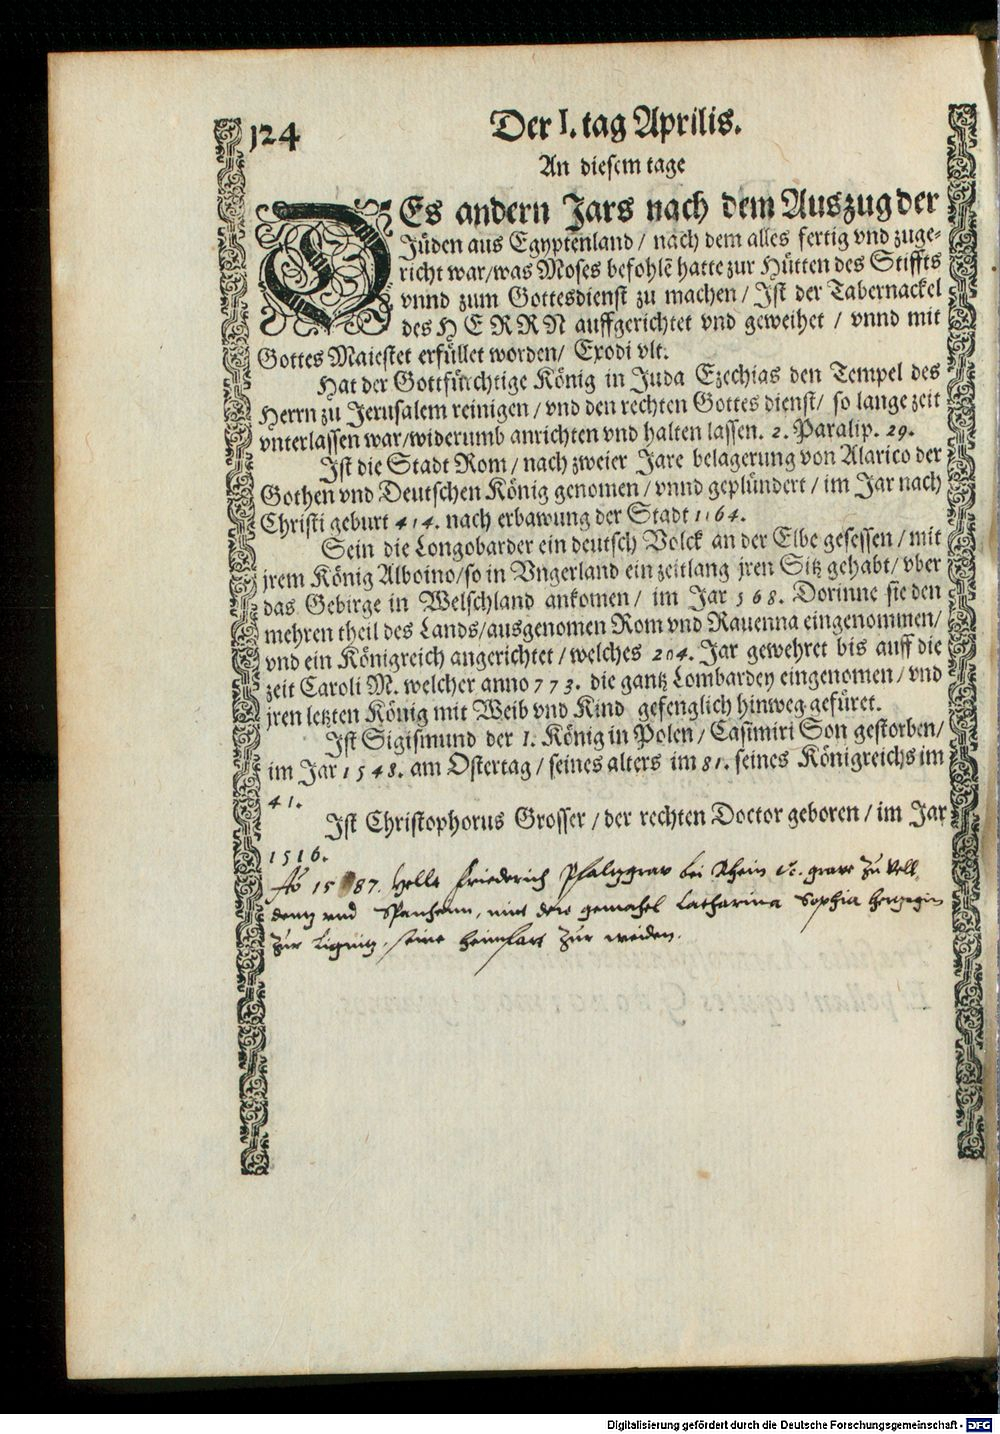 124
Der I. tag Aprilis.
An diesem tage
DEs andern Jars nach dem Auszug der
Jüden aus Egyptenland / nach dem alles fertig vnd zuge⸗
richt war/was Moses befohlē hatte zur Hütten des Stiffts
vnnd zum Gottesdienst zu machen / Ist der Tabernackel
des HERRN auffgerichtet vnd geweihet / vnnd mit
Gottes Maiestet erfüllet worden/ Exodi vlt.
Hat der Gottfürchtige König in Juda Ezechias den Tempel des
Herrn zu Jerusalem reinigen / vnd den rechten Gottes dienst/ so lange zeit
vnterlassen war/widerumb anrichten vnd halten lassen. 2. Paralip. 29.
Ist die Stadt Rom / nach zweier Jare belagerung von Alarico der
Gothen vnd Deutschen König genomen / vnnd geplündert / im Jar nach
Christi geburt 414. nach erbawung der Stadt 1164.
Sein die Longobarder ein deutsch Volck an der Elbe gesessen / mit
jrem König Alboino/so in Vngerland ein zeitlang jren Sitz gehabt/ vber
das Gebirge in Welschland ankomen / im Jar 568. Dorinne sie den
mehren theil des Lands/ausgenomen Rom vnd Rauenna eingenommen/
vnd ein Königreich angerichtet / welches 204. Jar gewehret bis auff die
zeit Caroli M. welcher anno 773. die gantz Lombardey eingenomen / vnd
jren letzten König mit Weib vnd Kind gefenglich hinweg gefüret.
Ist Sigismund der I. König in Polen / Casimiri Son gestorben/
im Jar 1548. am Ostertag / seines alters im 81. seines Königreichs im
41.
Ist Christophorus Grosser / der rechten Doctor geboren / im Jar
1516.
Ao 1587. Hellt Friederich Pfaltzgrav bei Rhein &c. grave zu Vell
dentz vnd Spanheim, mit dero gemahel Catharina Sophia hertzogin
zur Lignitz, seine heimfart zur weiden.
Digitalisierung gefördert durch die Deutsche Forschungsgemeinschaft - DFG